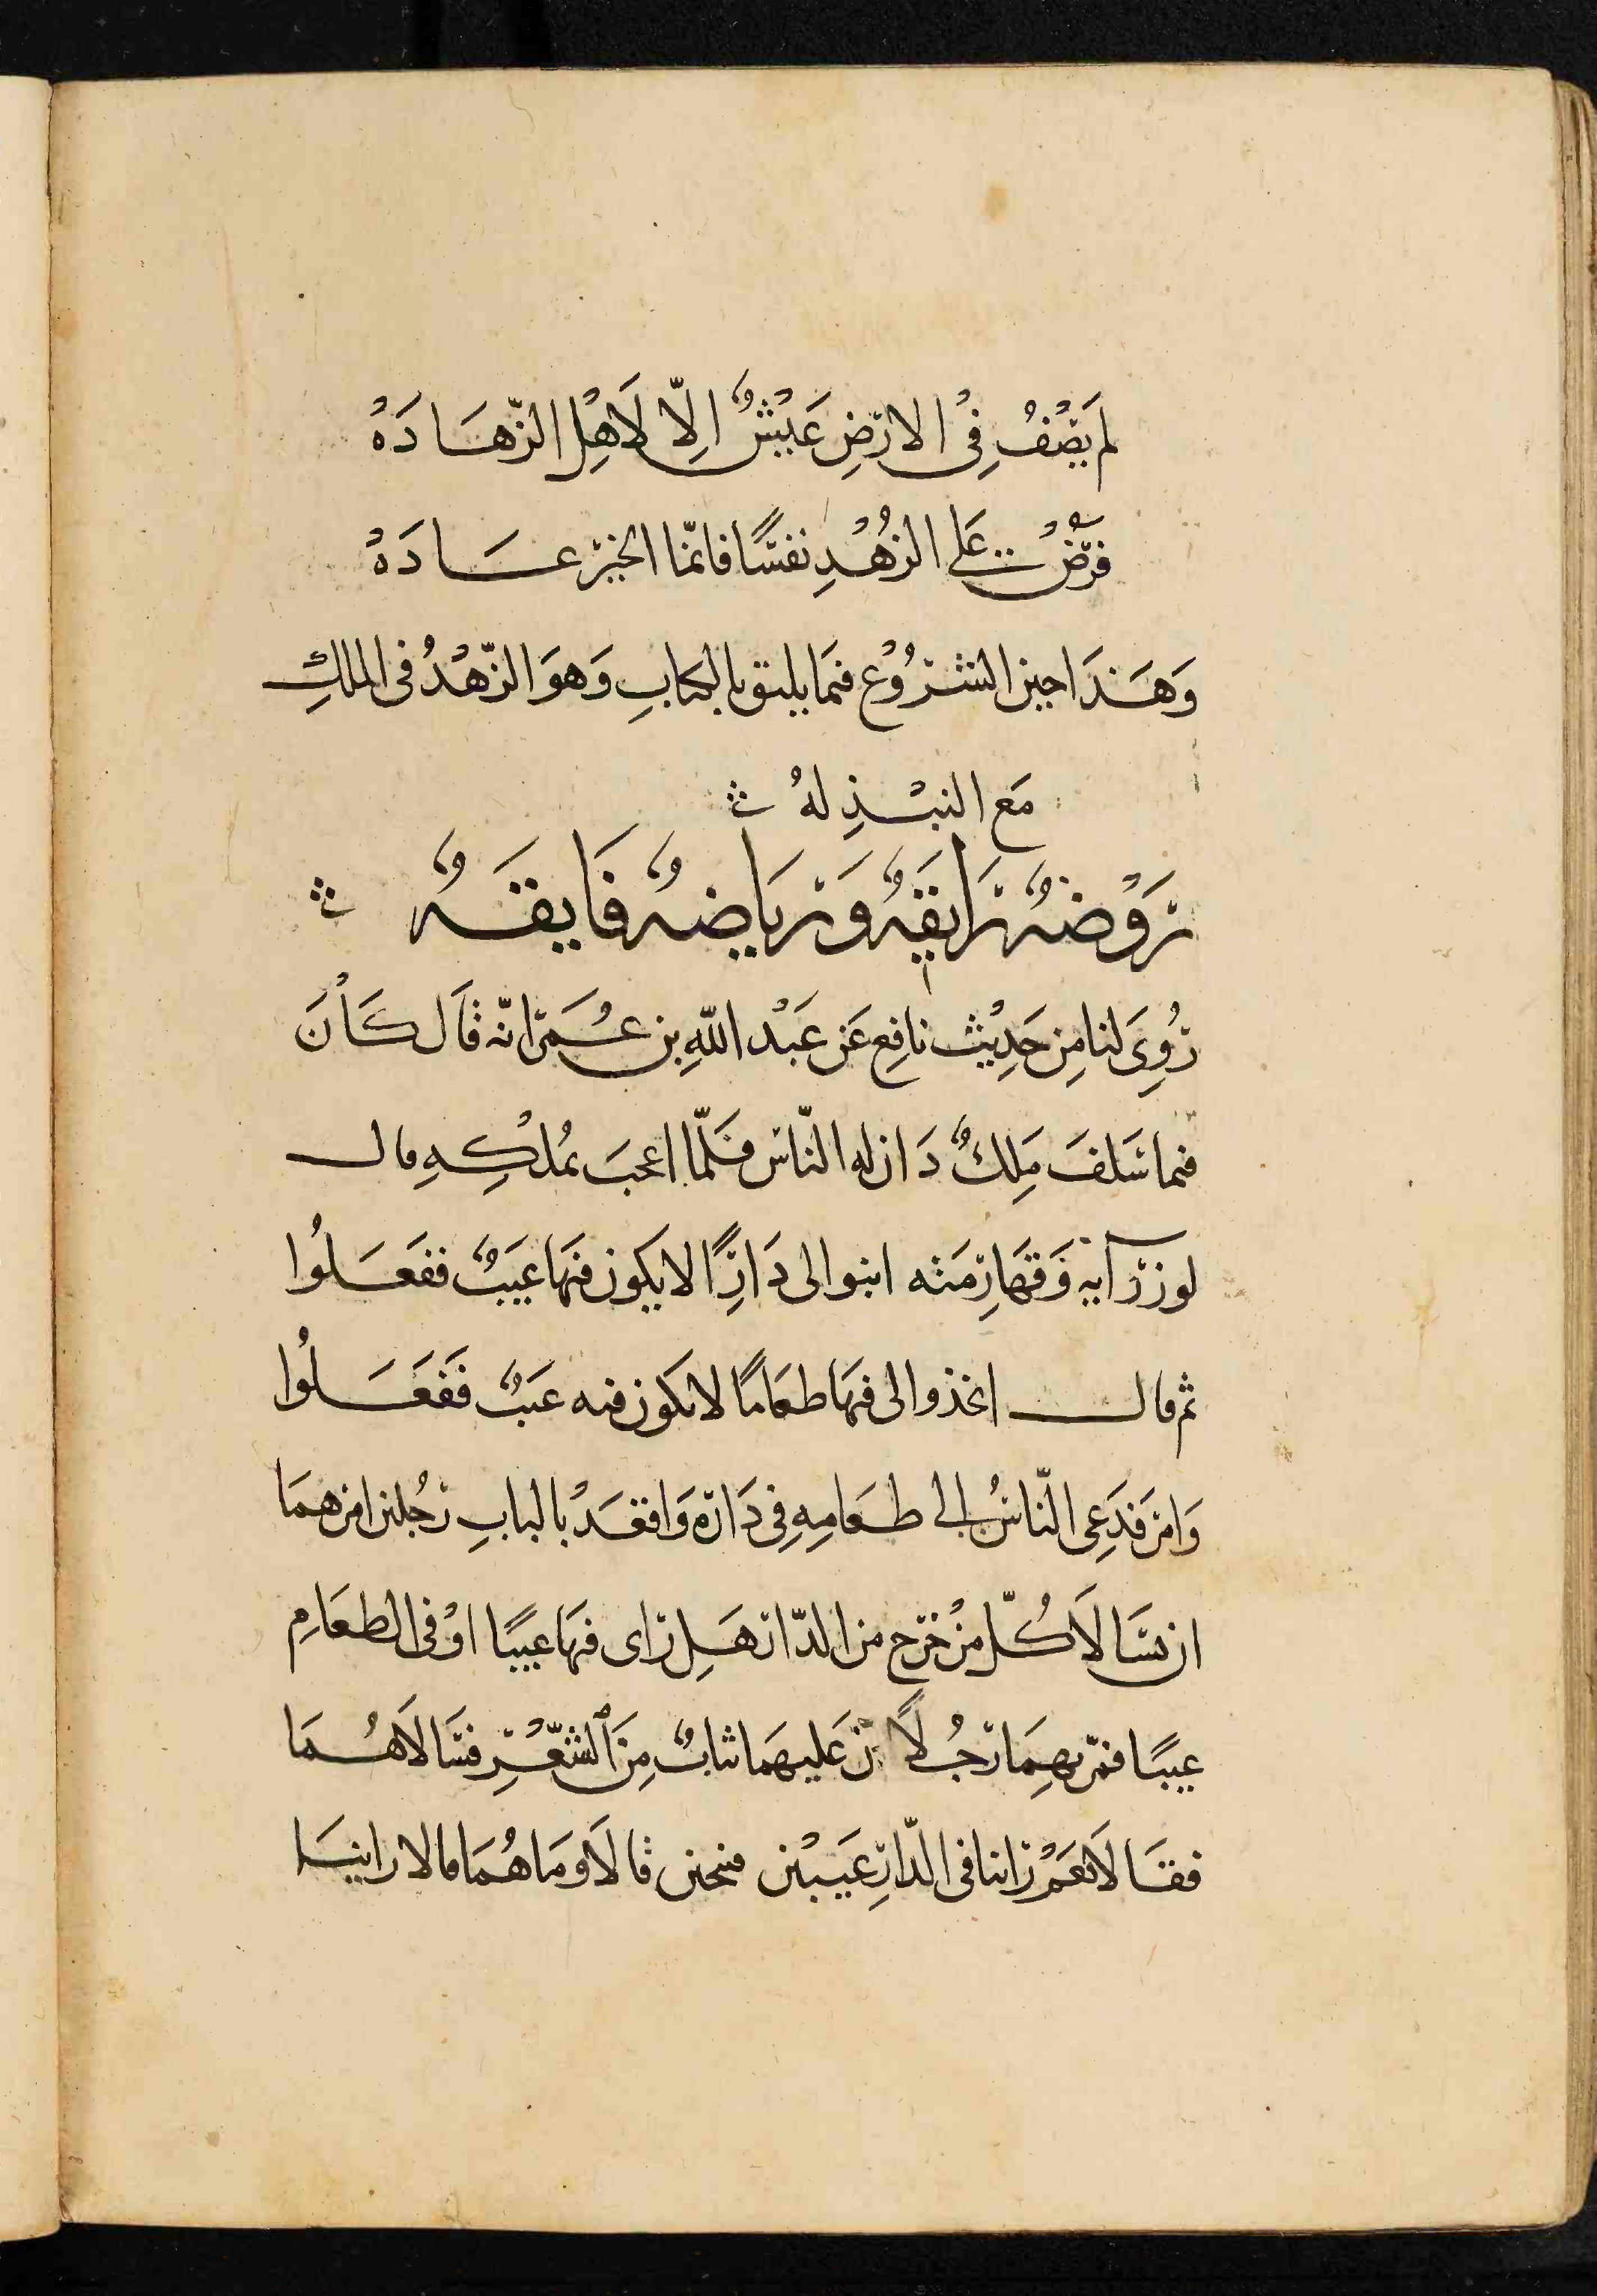 لَم يَصْفُ فِى الارضِ عَيْشٌ الِّا لَاهْلِ الزّهَادَهْ
فرُضْ عَلى الزُهْدِ نفسًا فانمّا الخير عَادَهْ
وَهَذَا حين الشرُوْع فيمَا يليق بالكِتابِ وَهوَ الزّهْدُ فى الملكِ
مَع النبْذِ لهُ
رَوْضةٌ رَايقَةٌ وَرياضةٌ فَايقَةٌ
رُوِىَ لنا مِن حَدِيْث نافِع عَن عَبْد اللّهِ بن عُمَر انّه قَال كَاْنَ
فيما سَلفَ مَلِكٌ دَان له النّاس فَلمّا اعجبَ بمُلْكِهِ قال
لوزرآيه وَقهَارِمَته ابنوا لى دَارًا لا يكون فيهَا عَيبٌ ففعَلُوا
ثم قال اتخذوا لى فيهَا طعَامًا لا يكون فيه عَيبٌ ففَعَلُوا
وَامَر فَدَعِى النّاسُ الى طعَامِهِ فِى دَاره وَاقعَدْ بالبابِ رَجُلين امرهمَا
ان يسَالَا كُلّ مَنْ خرَج من الدّار هَل رَاى فيهَا عيبًا اوْ فى الطعَامِ
عيبًا فمّر بهِمَا رَجُلَانْ عَليهمَا ثيابٌ مِنَ الشّعْرِ فسَالَاهُمَا
فقالَا نعَمْ رَاينا فى الدّارِ عَيبيْن فنحين قالَا وَمَا هُمَا قالا راينَا